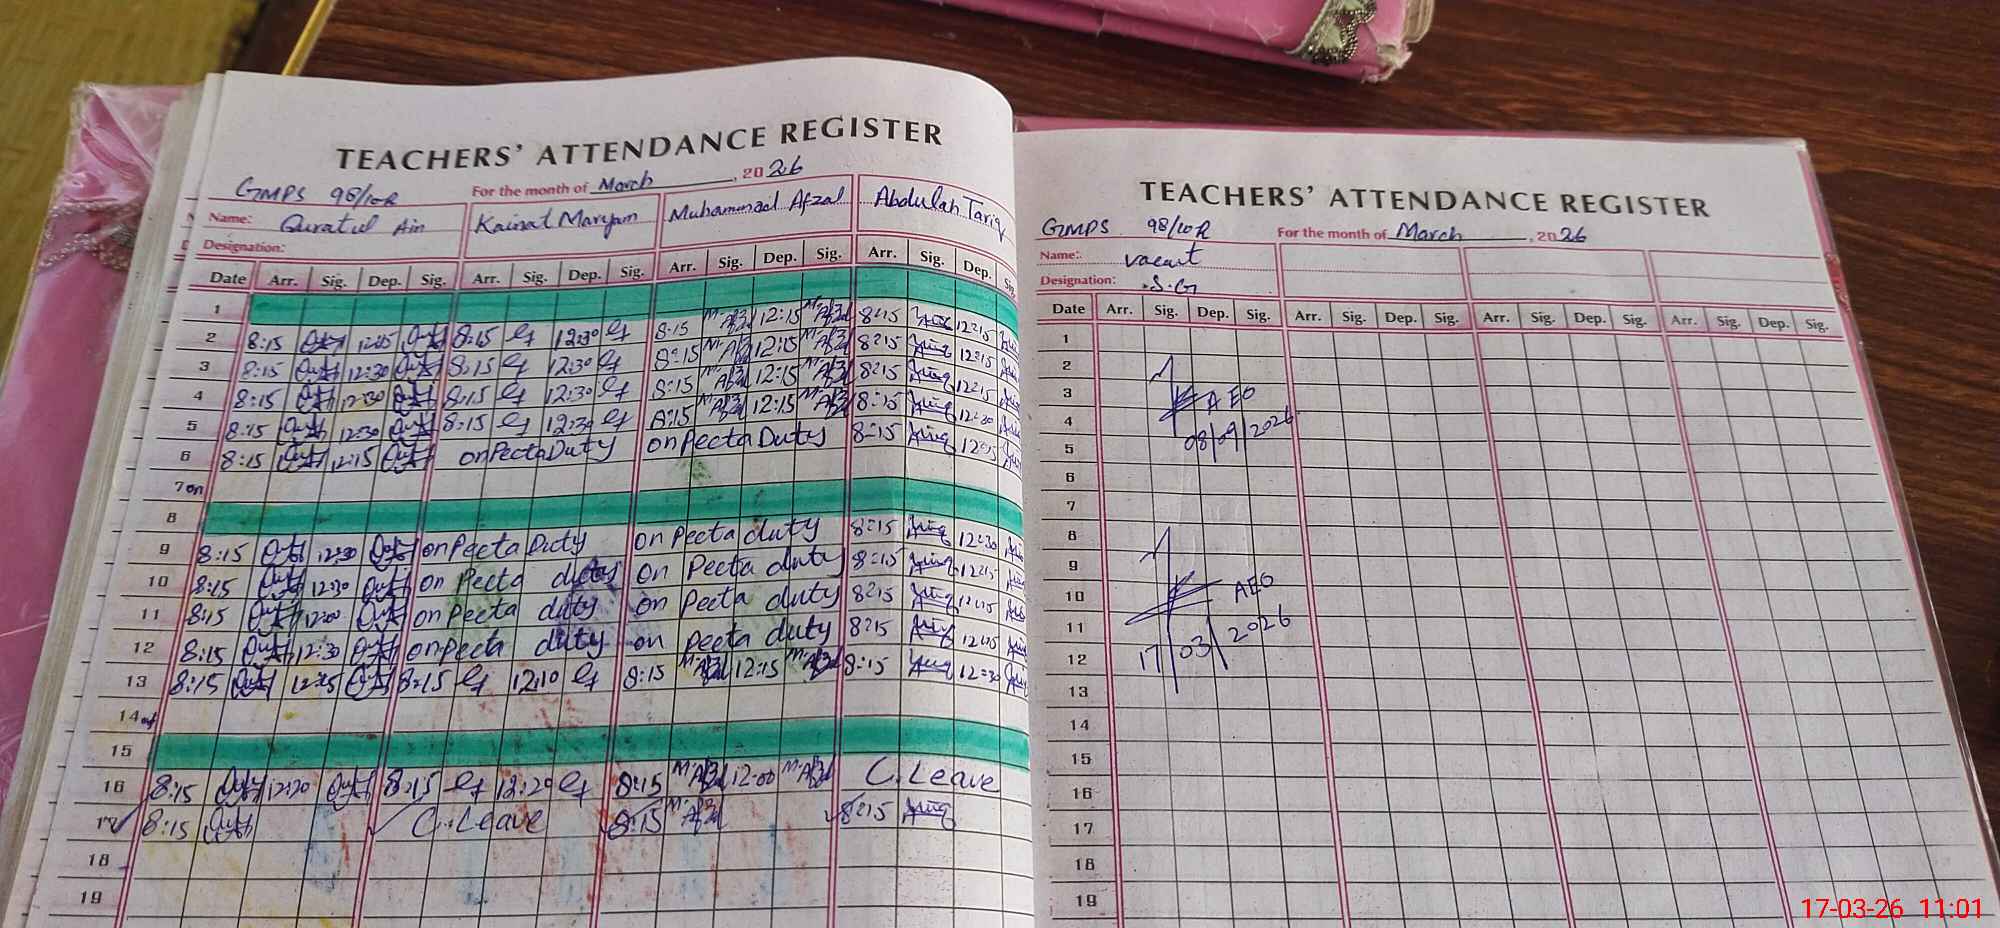 TEACHERS' ATTENDANCE REGISTER
GMPS 98/10R For the month of March, 2026
Name: Quratul Ain Kainat Maryam Muhammad Afzal Abdulah Tariq
Designation:
Date Arr. Sig. Dep. Sig. Arr. Sig. Dep. Sig. Arr. Sig. Dep. Sig. Arr. Sig. Dep. Sig.
1
2 8:15 8:15 12:30 8:15 M.Afzal 12:15 M.Afzal 8:15 12:15
3 8:15 12:30 8:15 12:30 8:15 M.Afzal 12:15 M.Afzal 8:15 12:15
4 8:15 12:30 8:15 12:30 8:15 M.Afzal 12:15 M.Afzal 8:15 12:15
5 8:15 12:30 8:15 12:30 8:15 M.Afzal 12:15 M.Afzal 8:15 12:30
6 8:15 12:15 on Pecta Duty on Pecta Duty 8:15
7
8
9 8:15 12:30 on Pecta Duty on Pecta duty 8:15 12:30
10 8:15 on Pecta duty on Pecta duty 8:15 12:15
11 8:15 on Pecta duty on Pecta duty 8:15
12 8:15 12:30 on Pecta duty on Pecta duty 8:15
13 8:15 8:15 12:10 8:15 M.Afzal 12:15 M.Afzal 8:15 12:30
14
15
16 8:15 12:20 8:15 12:20 8:15 M.Afzal 12:00 M.Afzal C.Leave
17 8:15 C.Leave 8:15 M.Afzal 8:15
18
19
TEACHERS' ATTENDANCE REGISTER
GMPS 98/10R For the month of March, 2026
Name: vacant
Designation: S.G
Date Arr. Sig. Dep. Sig. Arr. Sig. Dep. Sig. Arr. Sig. Dep. Sig. Arr. Sig. Dep. Sig.
1
2
3 AEO
4 08/09/2026
5
6
7
8
9
10 AEO
11 17/03/2026
12
13
14
15
16
17
18
19
17-03-26 11:01